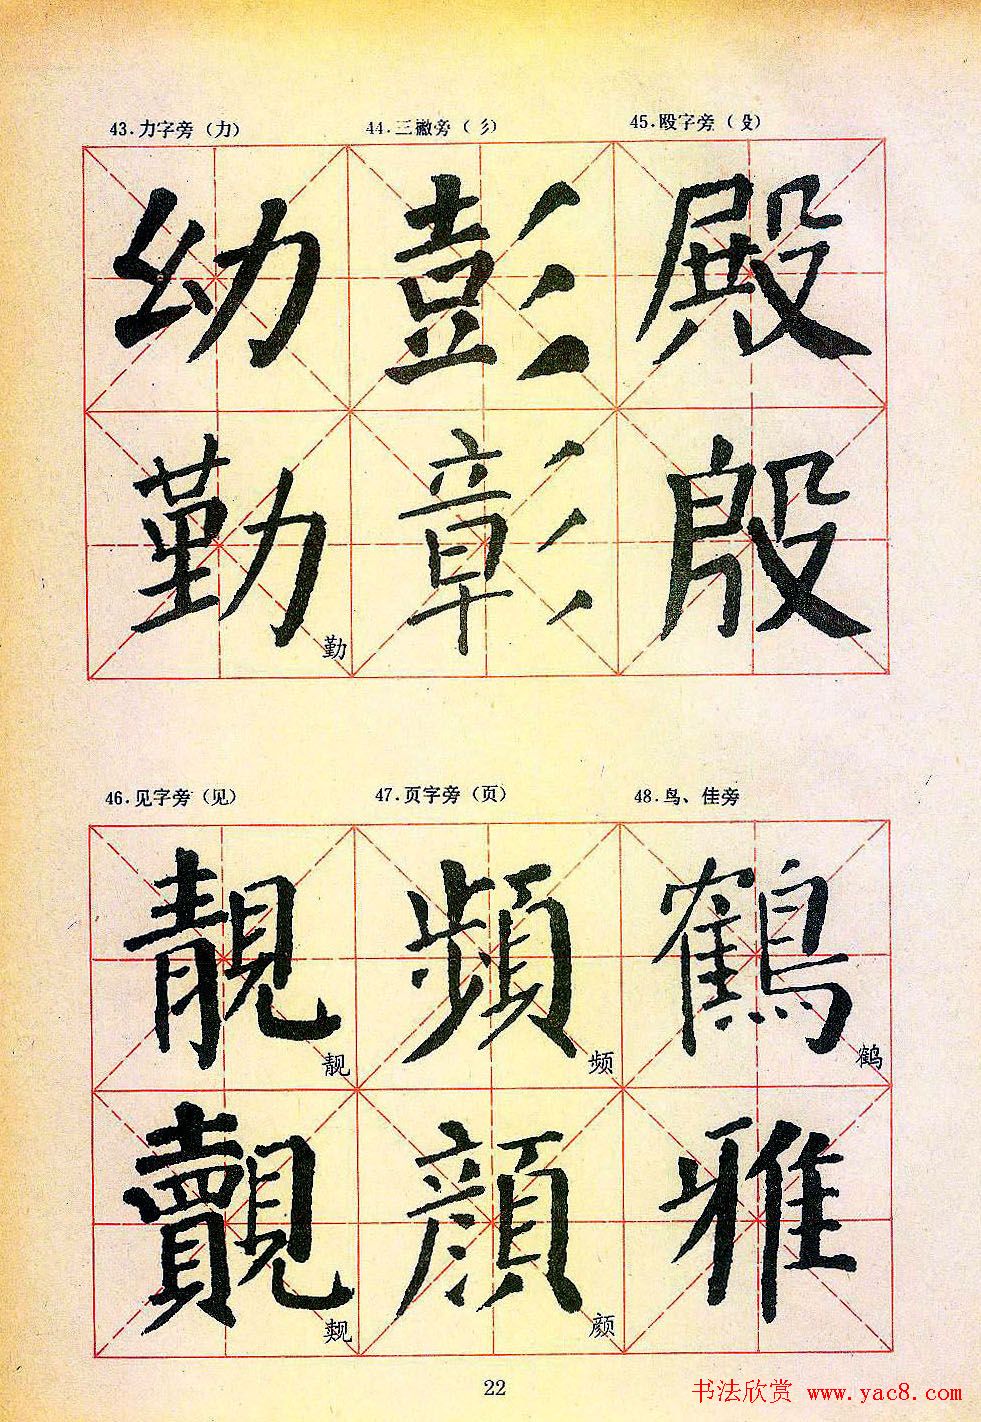 43.力字旁（力） 44.三撇旁（彡） 45.殴字旁（殳）
幼 彭 殿
勤 彰 殷
勤
46.见字旁（见） 47.页字旁（页） 48.鸟、佳旁
靚 頻 鶴
靓 频 鹤
覿 顔 雅
觌 颜
22
书法欣赏 www.yac8.com